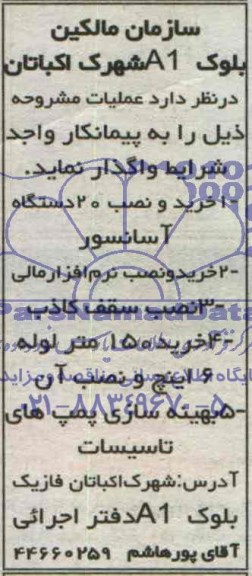 سازمان مالکین
بلوک A1شهرک اکباتان
درنظر دارد عملیات مشروحه
ذیل را به پیمانکار واجد
شرایط واگذار نماید.
-۱خرید و نصب ۲۰دستگاه
آسانسور
-۲خریدونصب نرم‌افزارمالی
-۳نصب سقف کاذب
-۴خرید۱۵۰ متر لوله
۶ اینچ و نصب آن
۰۲۱-۸۸۳۴۹۶۷۰-۵
-۵بهینه سازی پمپ های
تاسیسات
آدرس:شهرک‌اکباتان فازیک
بلوک A1دفتر اجرائی
آقای پورهاشم ۴۴۶۶۰۲۵۹